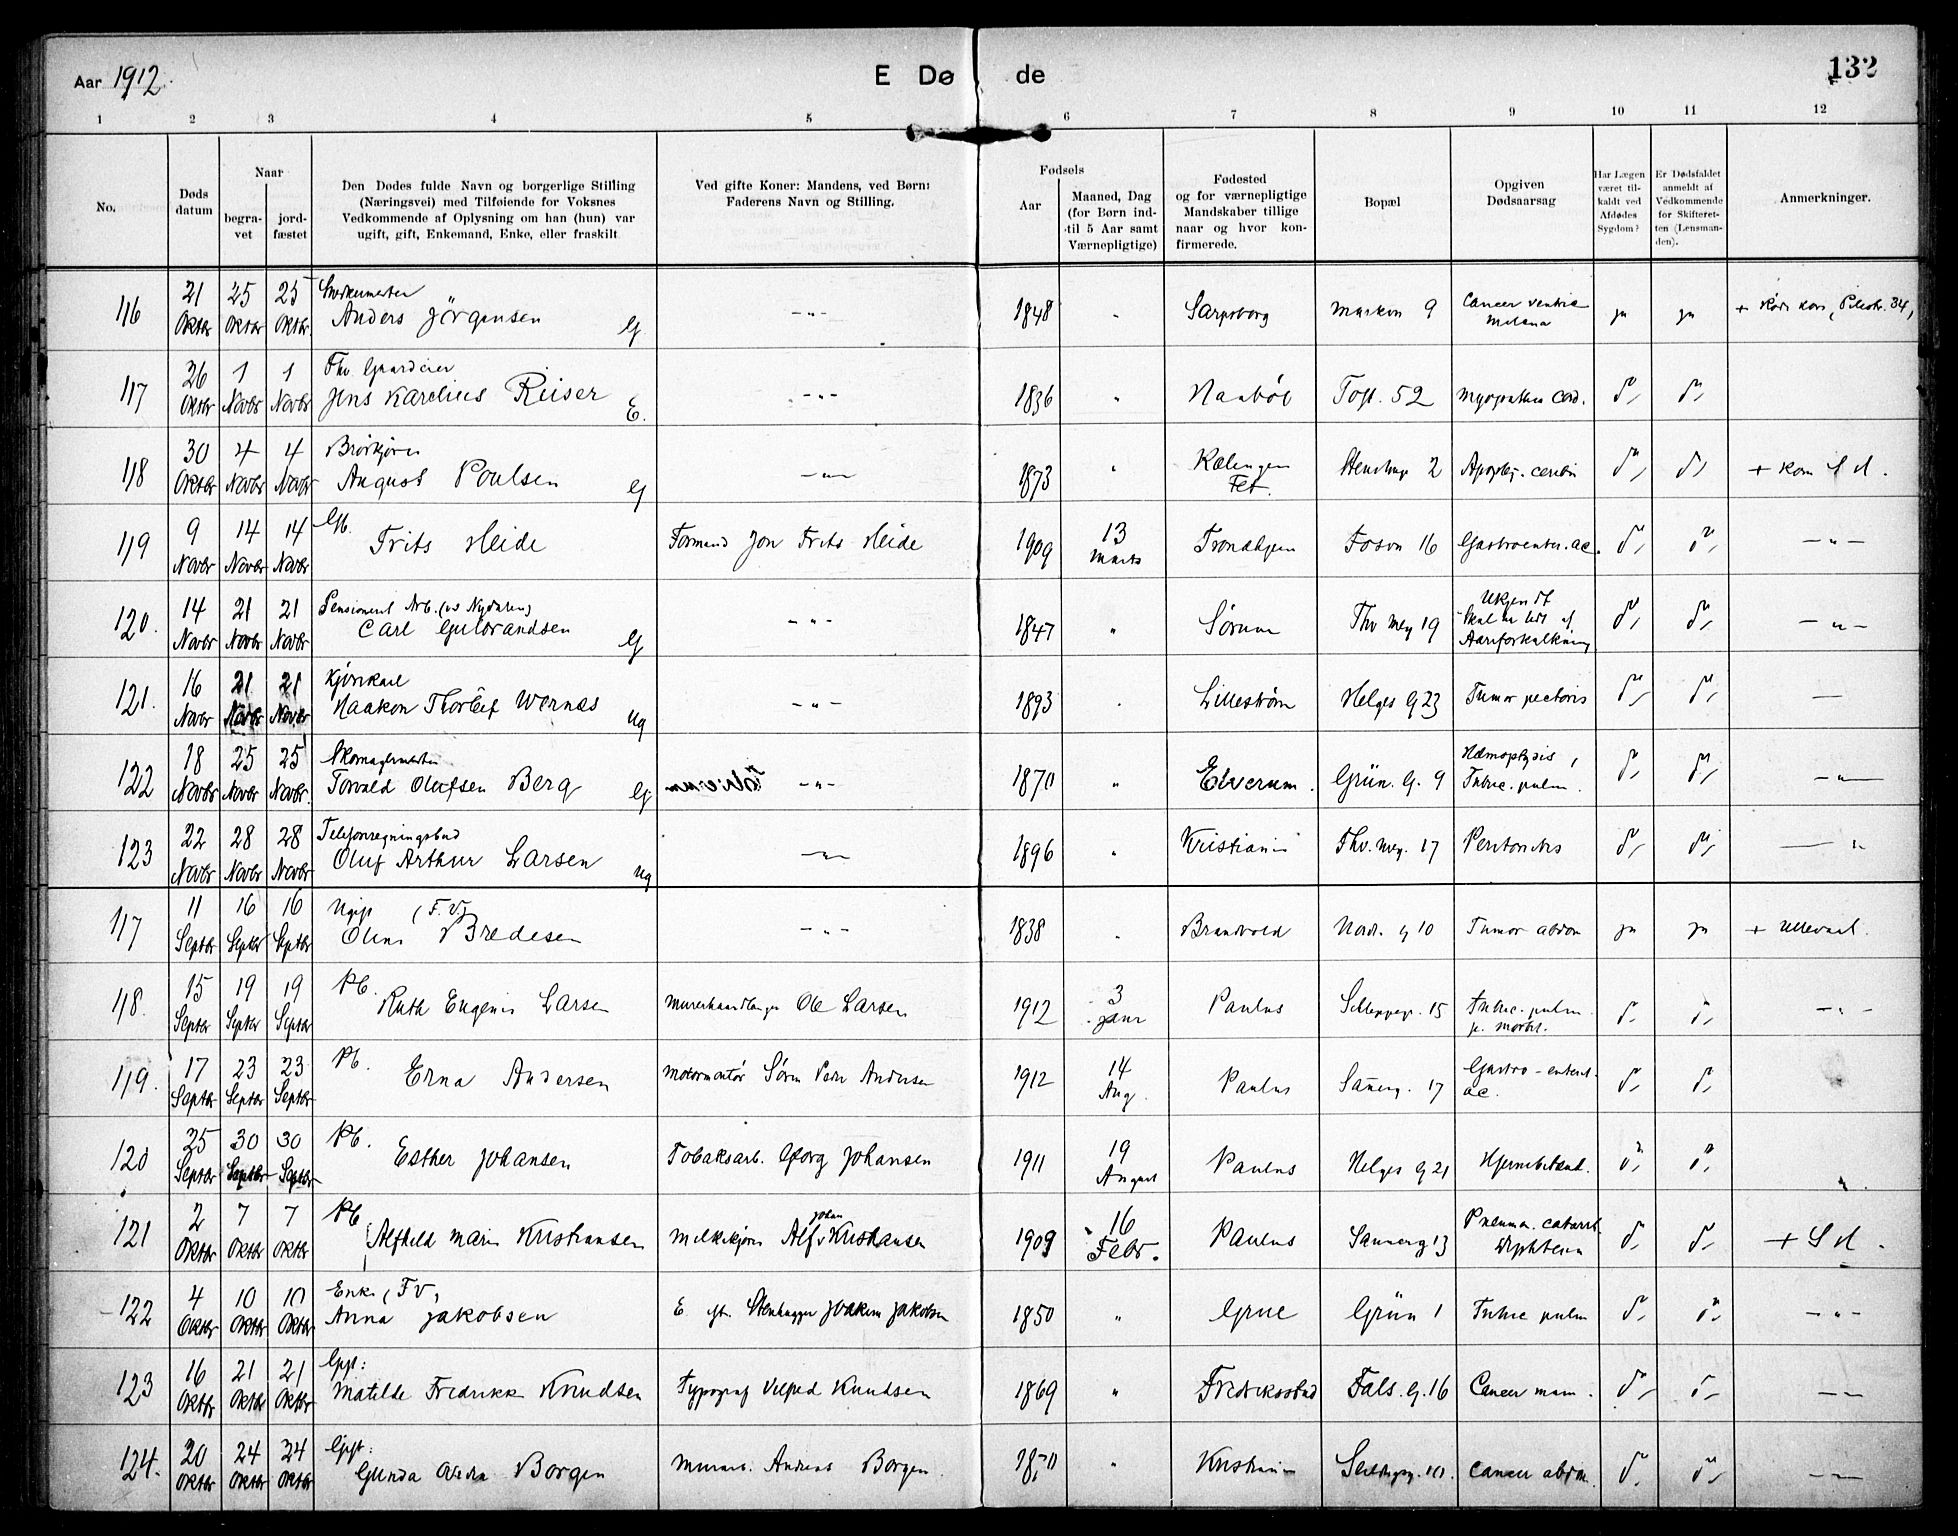 Aar 1912.
E Døde
132
1 2 3 4 5 6 7 8 9 10 11 12
No.
Døds datum
Naar
begravet
jordfæstet
Den Dødes fulde Navn og borgerlige Stilling
(Næringsvei) med Tilføiende for Voksnes
Vedkommende af Oplysning om han (hun) var
ugift, gift, Enkemand, Enke, eller fraskilt
Ved gifte Koner: Mandens, ved Børn:
Faderens Navn og Stilling.
Fødsels
Aar
Maaned, Dag
(for Børn ind-
til 5 Aar samt
Værnepligtige)
Fødested
og for værnepligtige
Mandskaber tillige
naar og hvor kon-
firmerede.
Bopæl
Opgiven
Dødsaarsag
Har Lægen
været til-
kaldt ved
Afdødes
Sygdom?
Er Dødsfaldet
anmeldt af
Vedkommende
for Skifteret-
ten (Lensman-
den).
Anmerkninger.
116 21 Oktbr 25 Oktbr 25 Oktbr Anders Jörgensen G —"— 1848 " Sarpsborg 9 Cancer ventric Melæna ja ja
117 26 Oktbr 1 Novbr 1 Novbr Fhv. Jens Karelius Reiser E. —"— 1836 " Toft. 52 d, d,
118 30 Oktbr 4 Novbr 4 Novbr August Poulsen G —"— 1873 " Rælingen Fet. 2 Apoplex. cerebri d, d,
119 9 Novbr 14 Novbr 14 Novbr Gb. Frits Heide Formand Jon Frits Heide 1909 13 Marts Trondhjem Fosvn 16 Gastroenter. ac. d, d, —"—
120. 14 Novbr 21 Novbr 21 Novbr Pensioneret Arb. (vs Nydalen) Carl Gulbrandsen G —"— 1847 " Sørum Thv mey 19 Ukjendt Skal ha lidt af Aareforkalkning d, d, —"—
121. 16 Novbr 21 Novbr 21 Novbr Kjørekarl Haakon Thorleif Wernæs Ug —"— 1893 . Lillestrøm Helges G 23 Tumor pectoris d, d, —
122 18 Novbr 25 Novbr 25 Novbr Skomagermester Torvald Olufsen Berg G —"— 1870 " Elverum. Grün. G. 9 Hæmoptysis, Tuberc. pulm. d, d, —"—
123 22 Novbr 28 Novbr 28 Novbr Telefonregningsbud Oluf Arthur Larsen Ug —"— 1896 " Kristiania Thv. mey. 17 Peritonitis d, d, — "
117 11 Septbr 16 Septbr 16 Septbr Ugift (F.V.) Bredesen —"— 1838 . Brandvold Nordr. g 10 Tumor abdom ja ja + Ullevaal.
118. 15 Septbr 19 Septbr 19 Septbr Pb. Ruth Eugenie Larsen Murerhaandlanger Ole Larsen 1912 3 Janr Paulus 15 Tuberc. pulm. p. morbil. d, d, —"—
119. 17 Septbr 23 Septbr 23 Septbr Pb. Erna Andersen Søren Peder Andersen 1912 14 Aug. Paulus Sannerg. 17 Gastro-enterit. ac. d, d,
120 25 Septbr 30 Septbr 30 Septbr Pb. Esther Johansen Tobaksarb. Georg Johansen 1911 19 August Paulus Helges G 21 Hjernebetænd. d, d, "
121 2 Oktbr 7 Oktbr 7 Oktbr Pb Alfhild Marie Kristiansen Melkekjører Alf Johan Kristiansen 1909 16 Febr. Paulus Sannerg 13 Pneumon. catarrh. Diphteri d, d,
122 4 Oktbr 10 Oktbr 10 Oktbr Enke (FV) Anna Jakobsen E. eft. Stenhugger Joakim Jakobsen 1850 " Grue Grün 1 Tuberc pulm d, d, —"—
123 16 Oktbr 21 Oktbr 21 Oktbr Gift: Matilde Fredrikke Knudsen Typograf Knudsen 1869 " Fredriksstad Fals. G. 16 Cancer mam. d, d, ——
124. 20 Oktbr 24 Oktbr 24 Oktbr Gift: Gunda Borgen Murarb. Andreas Borgen 1870 " Kristiania Cancer abdm. d, d, ——